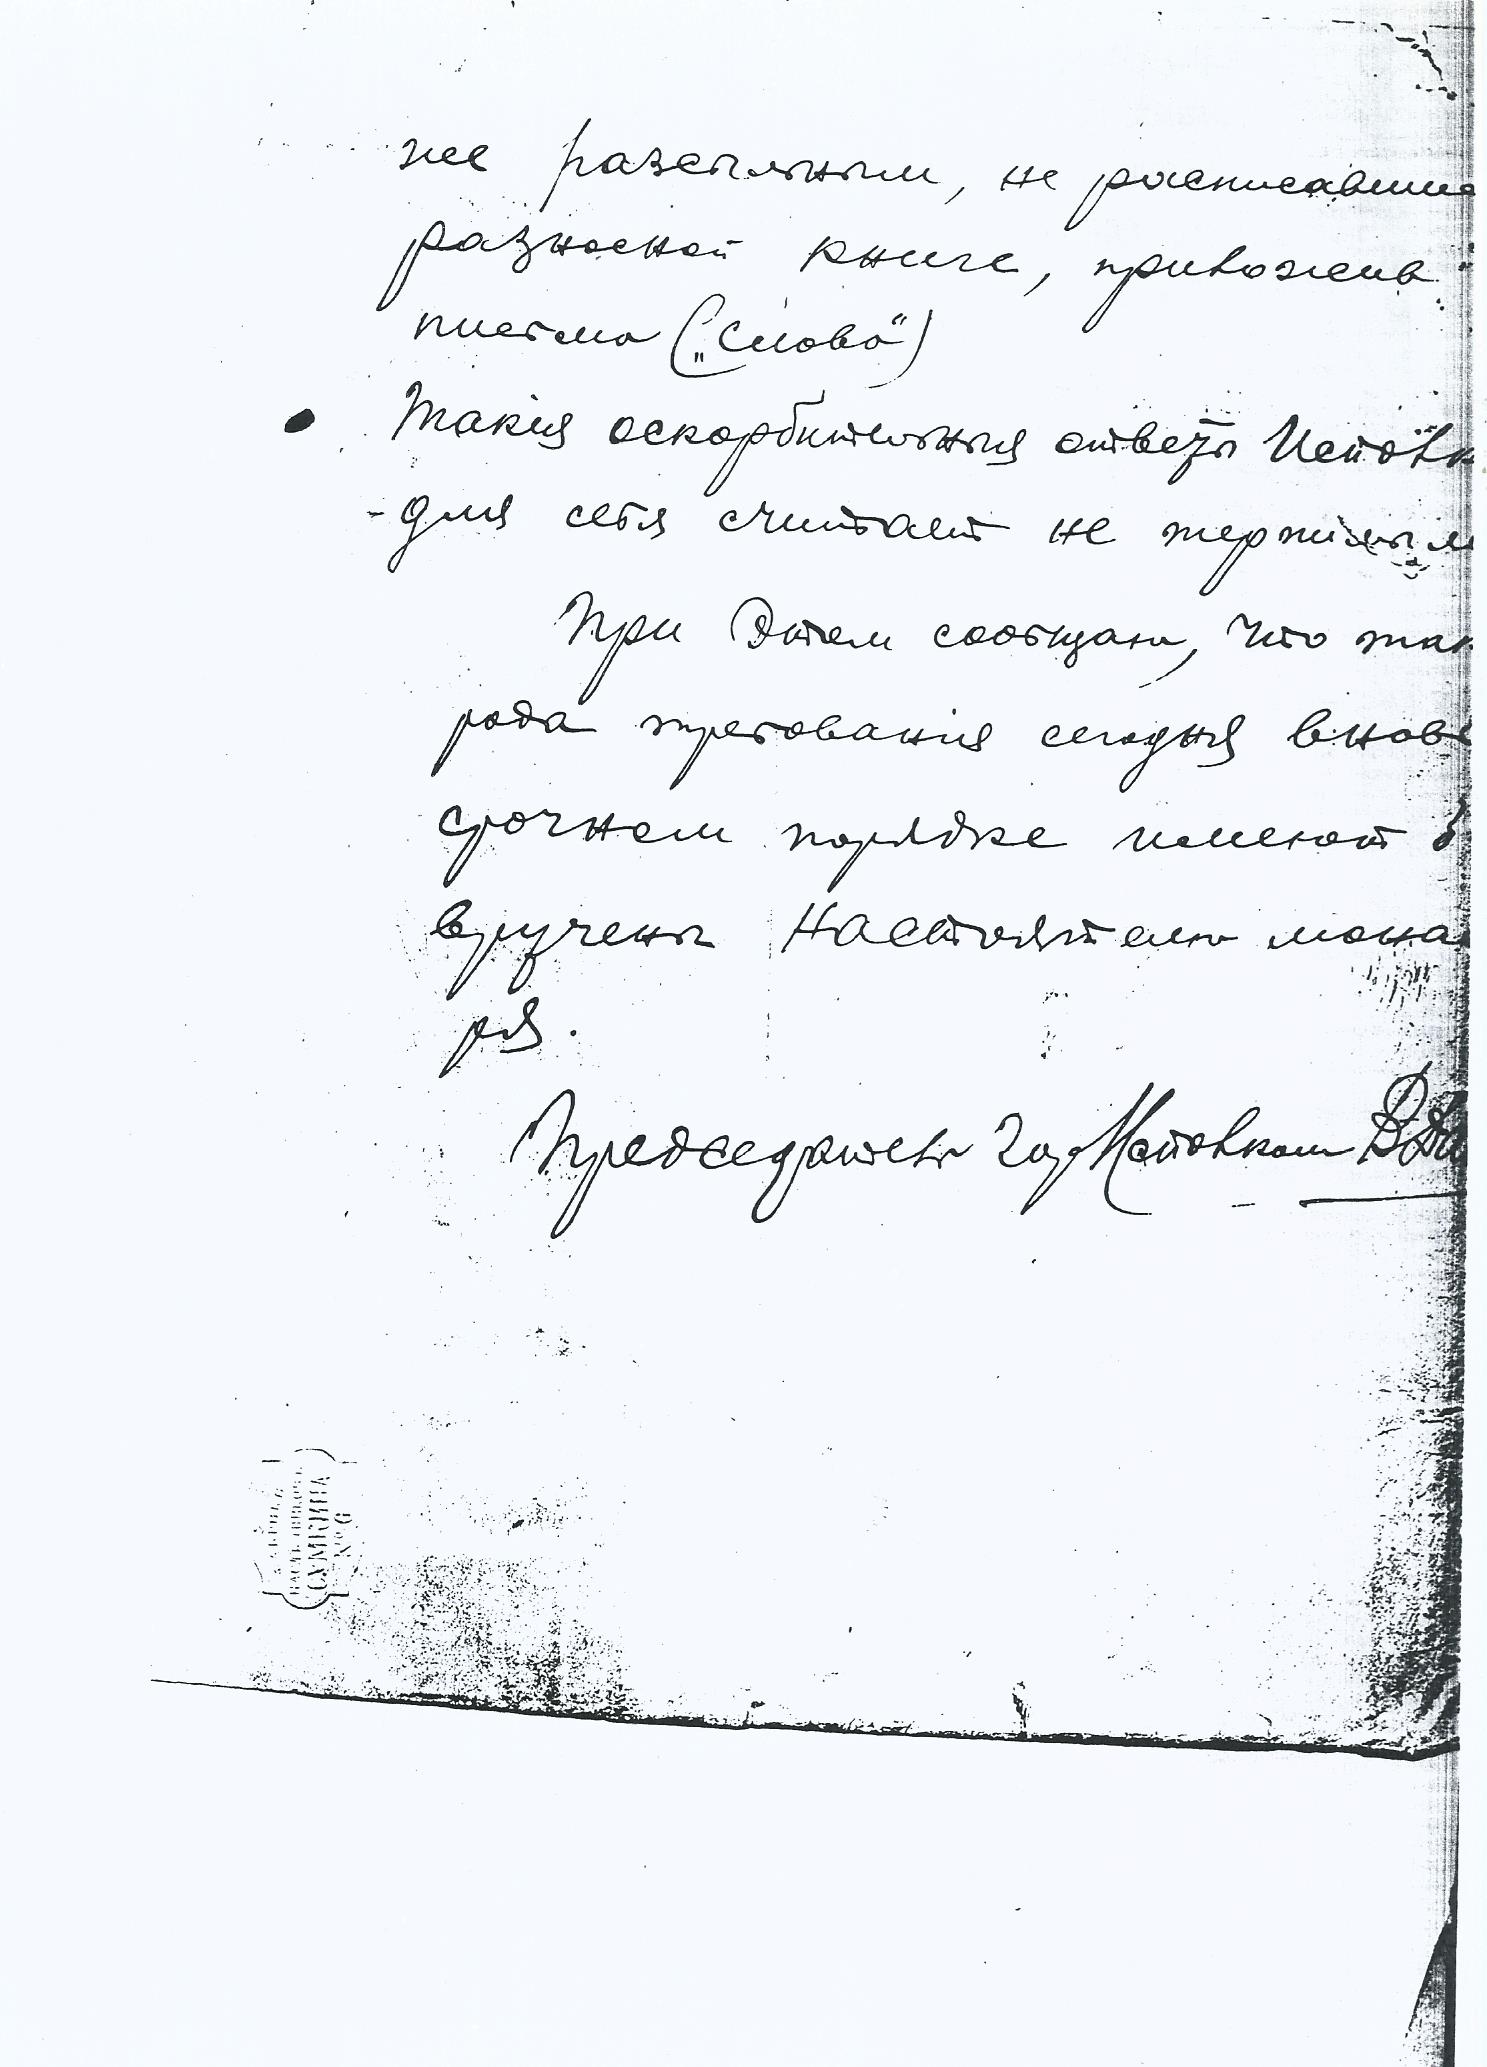 же разсыльным, не расписавши
разносной книге, приложив
письмо („Слово“)
Такия оскорбительныя ответы Исполк
для себя считает не терпимым
При этом сообщаю, что так
рода требования сегодня вновь
срочном порядке имеют б
вручены настоятелю мона
ря.
Председатель Гор Исполком
СУМКИНА
№ 6